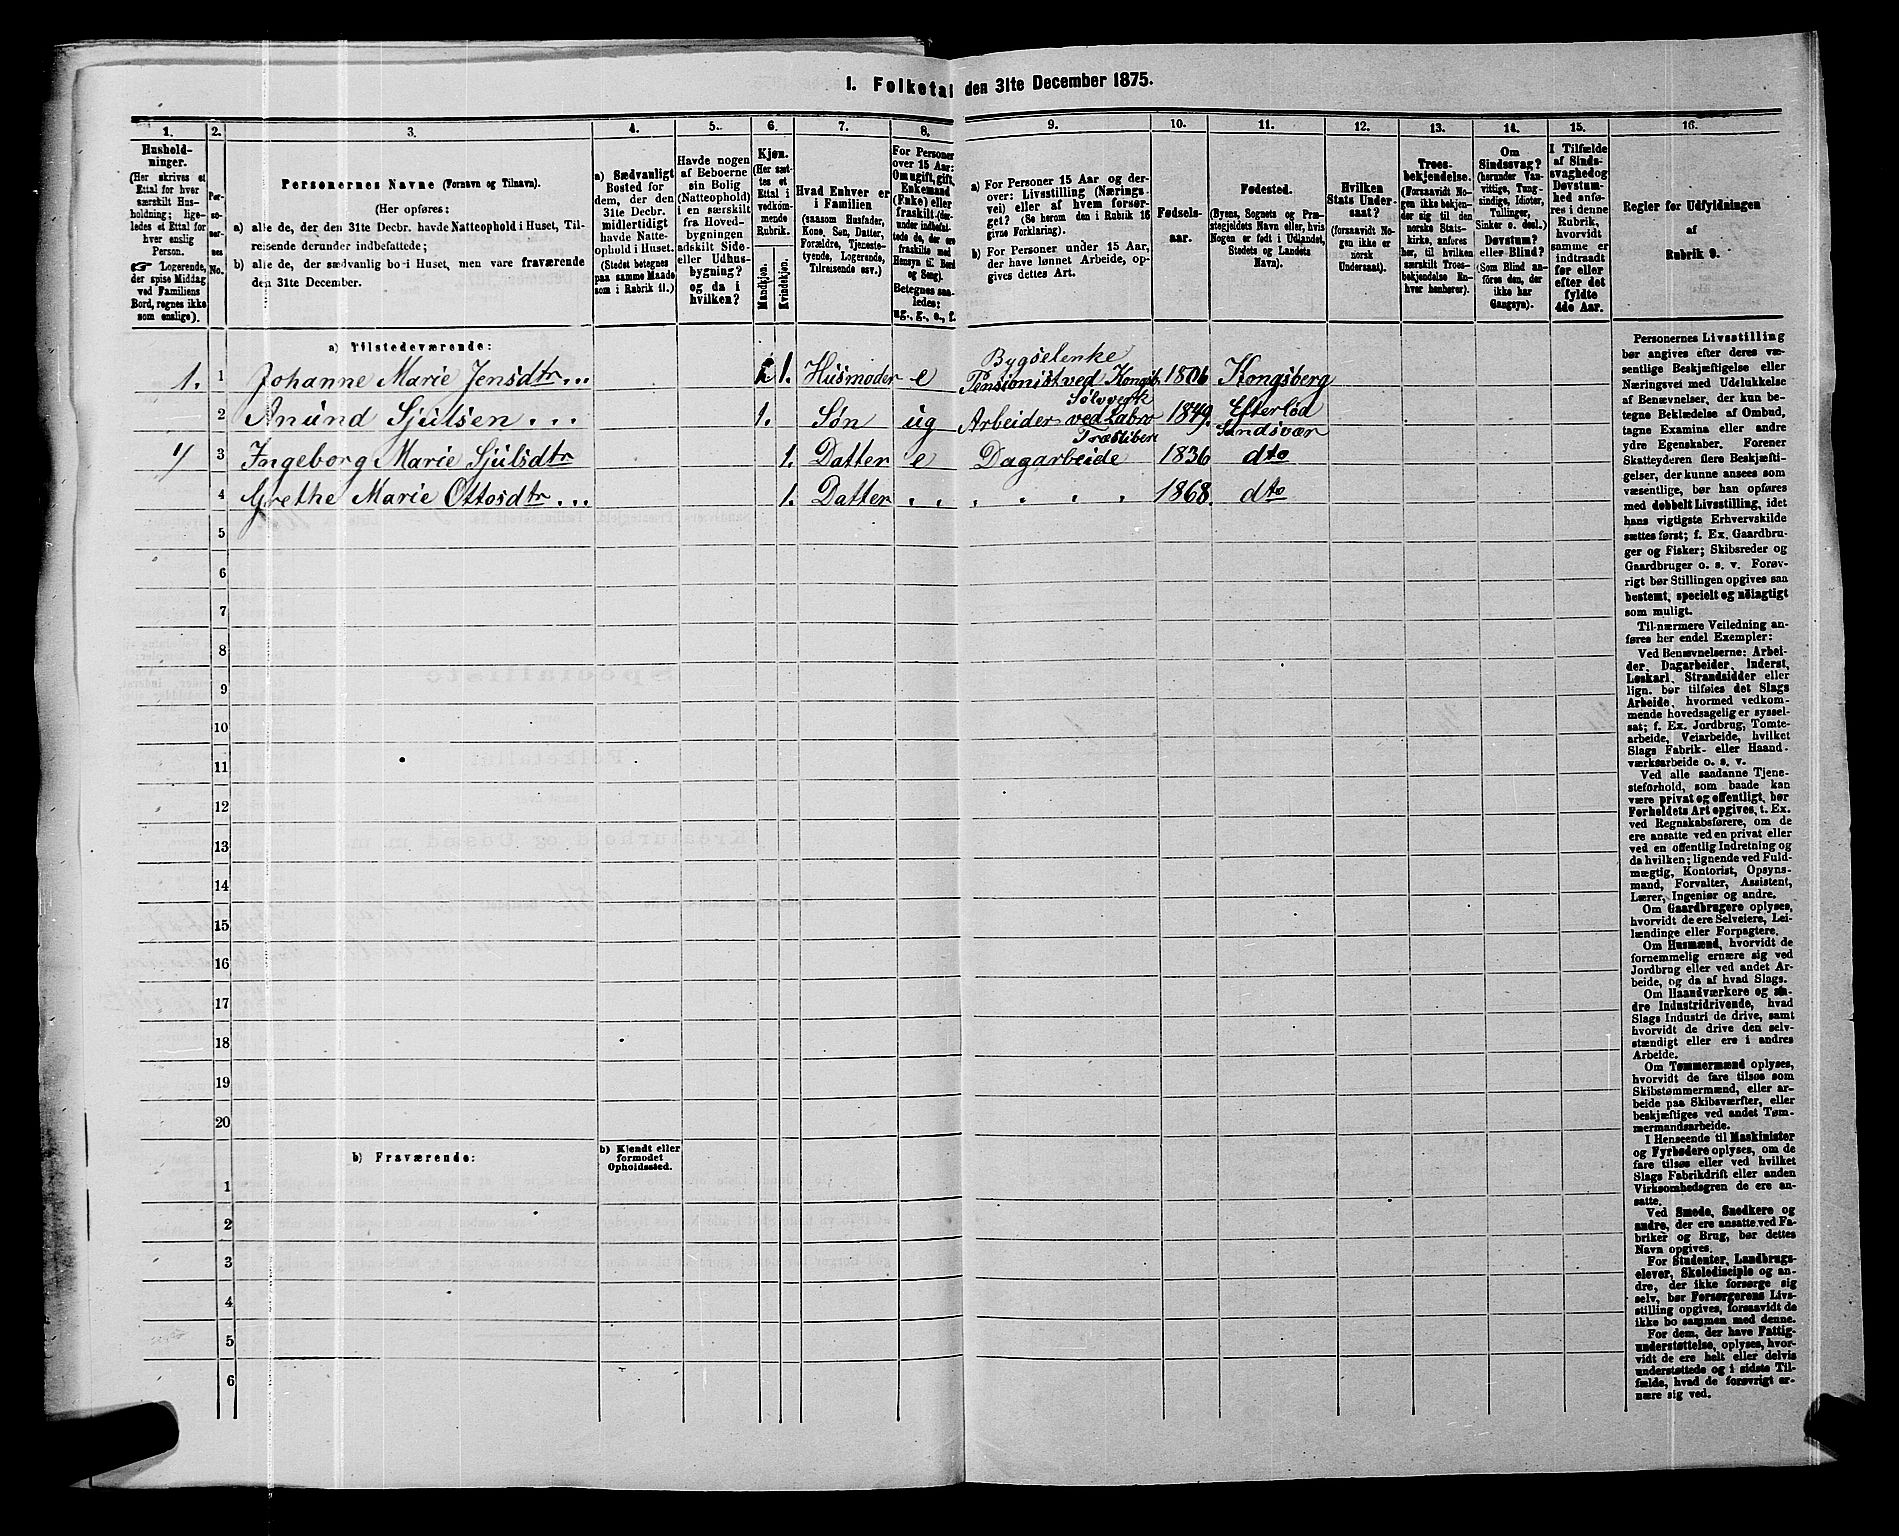 I. Folketal den 31te December 1875.
1. 2. 3. 4. 5. 6. 7. 8. 9. 10. 11. 12. 13. 14. 15. 16.
Hushold-
ninger.
(Her skrives et
Ettal for hver
særskilt Hus-
holdning; lige-
ledes et Ettal for
hver enslig
Person.
☞ Logerende,
der spise Middag
ved Familiens
Bord, regnes ikke
som enslige).
Per-
so-
ner-
nes
No.
Personernes Navne (Fornavn og Tilnavn).
(Her opføres:
a) alle de, der den 31te Decbr. havde Natteophold i Huset, Til-
reisende derunder indbefattede;
b) alle de, der sædvanlig bo i Huset, men vare fraværende
den 31te December.
a) Sædvanligt
Bosted for
dem, der den
31te Decbr.
midlertidigt
havde Natte-
ophold i Huset.
(Stedet betegnes
paa samme Maade
som i Rubrik 11.)
Havde nogen
af Beboerne
sin Bolig
(Natteophold)
i en særskilt
fra Hoved-
bygningen
adskilt Side-
eller Udhus-
bygning?
og da i
hvilken?
Kjøn.
(Her sæt-
tes et
Ettal i
vedkom-
mende
Rubrik.
Mandkjøn.
Kvindekjøn.
Hvad Enhver er
i Familien
(saasom Husfader,
Kone, Søn, Datter,
Forældre, Tjeneste-
tyende, Logerende,
Tilreisende osv.)
For Personer
over 15 Aar:
Om ugift, gift,
Enkemand
(Enke) eller
fraskilt. (der-
under indbefat-
tede de, der ere
fraskilte med
Hensyn til Bord
og Seng).
Betegnes saa-
ledes:
ug., g., e., f.
a) For Personer 15 Aar og der-
over: Livsstilling (Nærings-
vei) eller af hvem forsør-
get? (Se herom den i Rubrik 16
givne Forklaring).
b) For Personer under 15 Aar,
der have lønnet Arbeide, op-
gives dettes Art.
Fødsels-
aar.
Fødested.
(Byens, Sognets og Præ-
stegjeldets Navn eller, hvis
Nogen er født i Udlandet,
Stedets og Landets
Navn).
Hvilken
Stats Under-
saat?
(forsaavidt No-
gen ikke er
norsk
Undersaat).
Troes-
bekjendelse.
(Forsaavidt No-
gen ikke bekjen-
der sig til den
norske Stats-
kirke, anføres
her, til hvilken
særskilt Troes-
bekjendelse En-
hver henhører).
Om
Sindssvag?
(herunder Van-
vittige, Tung-
sindige, Idioter,
Tullinger,
Sinker o. desl.)
Døvstum?
eller Blind?
(Som Blind an-
føres den, der
ikke har
Gangsyn).
I Tilfælde
af Sinds-
svaghed og
Døvstum-
hed anfø-
res i denne
Rubrik,
hvorvidt
samme er
indtraadt
før eller
efter det
fyldte
4de Aar.
Regler for Udfyldningen
af
Rubrik 9.
a) Tilstedeværende:
Bygselenke
1. 1 Johanne Marie Jensdtr... 1. Husmoder e Pensionist ved Kongsb. 1806 Kongsberg
Sølvverk
2 Amund Sjulsen ... 1. Søn ug Arbeider ved Labro 1849. Eftelød
Træsliberi Sandsvær
3 Ingeborg Marie Sjulsdtr 1. Datter e Dagarbeide 1836 dto
4 Grethe Marie Ottosdtr... 1. Datter " " " " " " 1868. dto
5
6
7
8
9
10
11
12
13
14
15
16
17
18
19
20
b) Fraværende:
b) Kjendt eller
formodet
Opholdssted.
1
2
3
4
5
6
Personernes Livsstilling
bør angives efter deres væ-
sentlige Beskjæftigelse eller
Næringsvei med Udelukkelse
af Benævnelser, der kun be-
tegne Beklædelse af Ombud,
tagne Examina eller andre
ydre Egenskaber. Forener
Skatteyderen flere Beskjæfti-
gelser, der kunne ansees som
væsentlige, bør han opføres
med dobbelt Livsstilling, idet
hans vigtigste Erhvervskilde
sættes først; f. Ex. Gaardbru-
ger og Fisker; Skibsreder og
Gaardbruger o. s. v. Forøv-
rigt bør Stillingen opgives saa
bestemt, specielt og nøiagtigt
som muligt.
Til nærmere Veiledning an-
føres her endel Exempler:
Ved Benævnelserne: Arbei-
der, Dagarbeider, Inderst,
Løskarl, Strandsidder eller
lign. bør tilføies det Slags
Arbeide, hvormed vedkom-
mende hovedsagelig er syssel-
sat; f. Ex. Jordbrug, Tomte-
arbeide, Veiarbeide, hvilket
Slags Fabrik- eller Haand-
værksarbeide o. s. v.
Ved alle saadanne Tjene-
steforhold, som baade kan
være privat og offentligt, bør
Forholdets Art opgives, t. Ex.
ved Regnskabsførere, om de
ere ansatte ved en privat eller
ved en offentlig Indretning og
da hvilken; lignende ved Fuld-
mægtig, Kontorist, Opsyns-
mand, Forvalter, Assistent,
Lærer, Ingeniør og andre.
Om Gaardbrugere oplyses,
hvorvidt de ere Selveiere, Lei-
lændinge eller Forpagtere.
Om Husmænd, hvorvidt de
fornemmelig ernære sig ved
Jordbrug eller ved andet Ar-
beide, og da af hvad Slags.
Om Haandværkere og an-
dre Industridrivende, hvad
Slags Industri de drive, samt
hvorvidt de drive den selv-
stændigt eller ere i andres
Arbeide.
Om Tømmermænd oplyses,
hvorvidt de fare tilsøs som
Skibstømmermænd, eller ar-
beide paa Skibsværfter, eller
beskjæftiges ved andet Tøm-
mermandsarbeide.
I Henseende til Maskinister
og Fyrbødere oplyses, om de
fare tilsøs eller ved hvilket
Slags Fabrikdrift eller anden
Virksomhedsgren de ere an-
satte.
Ved Smede, Snedkere og
andre, der ere ansatte ved Fa-
briker og Brug, bør dettes
Navn opgives.
For Studenter, Landbrugs-
elever, Skoledisciple og an-
dre, der ikke forsørge sig
selv, bør Forsørgerens Livs-
stilling opgives, forsaavidt de
ikke bo sammen med denne.
For dem, der have Fattig-
understøttelse, oplyses, hvor-
vidt de ere helt eller delvis
understøttede og i sidste Til-
fælde, hvad de forøvrigt er-
nære sig ved.